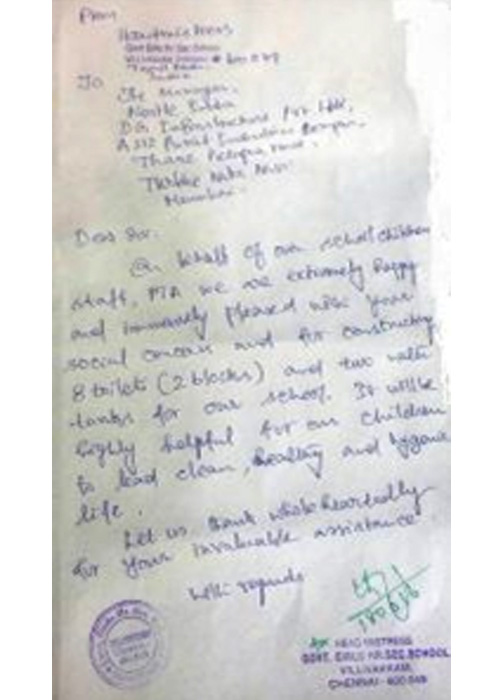 From
Headmistress
Govt Girls Hr Sec School
Tamil Nadu
India
To
The Manager,
Nestle India
DG Infrastructure Pvt Ltd,
Thane
Mumbai
Dear Sir.
On behalf of our school children
staff, PTA we are extremely happy
and immensely pleased with your
social concern and for constructing
8 toilets (2 blocks) and two water
tanks for our school. It will be
highly helpful for our children
to lead clean, healthy and hygenic
life.
Let us thank whole heartedly
for your invaluable assistance
With regards
HEAD MISTRESS
GOVT. GIRLS HR.SEC.SCHOOL
VILLIVAKKAM,
CHENNAI - 600 049